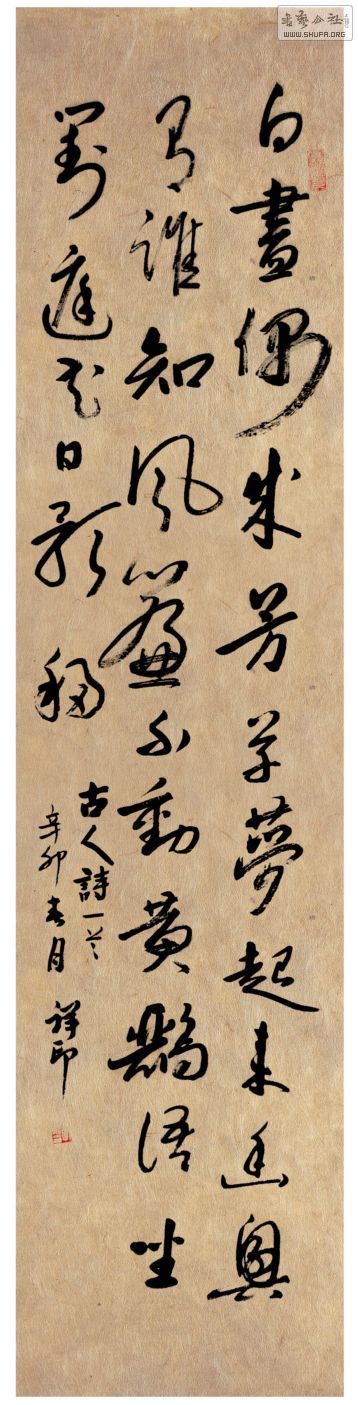 白晝偶成芳草夢起來幽興
有誰知風簾不動黃鸝語坐
對庭花日影移
古人詩一首
辛卯春月 祥印
书艺公社
WWW.SHUFA.ORG